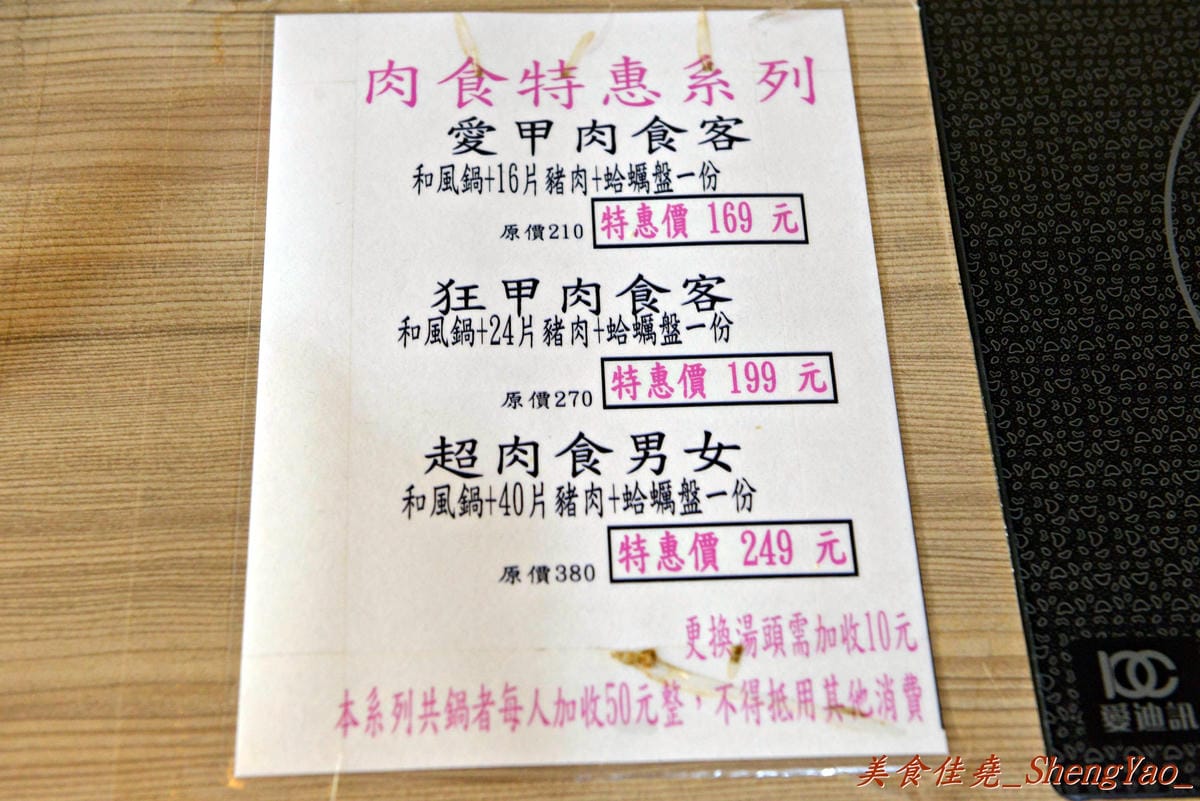 肉食特惠系列
愛甲肉食客
和風鍋+16片豬肉+蛤蠣盤一份
原價210 特惠價 169 元
狂甲肉食客
和風鍋+24片豬肉+蛤蠣盤一份
原價270 特惠價 199 元
超肉食男女
和風鍋+40片豬肉+蛤蠣盤一份
原價380 特惠價 249 元
更換湯頭需加收10元
本系列共鍋者每人加收50元整，不得抵用其他消費
愛迪訊
美食佳堯_ShengYao_